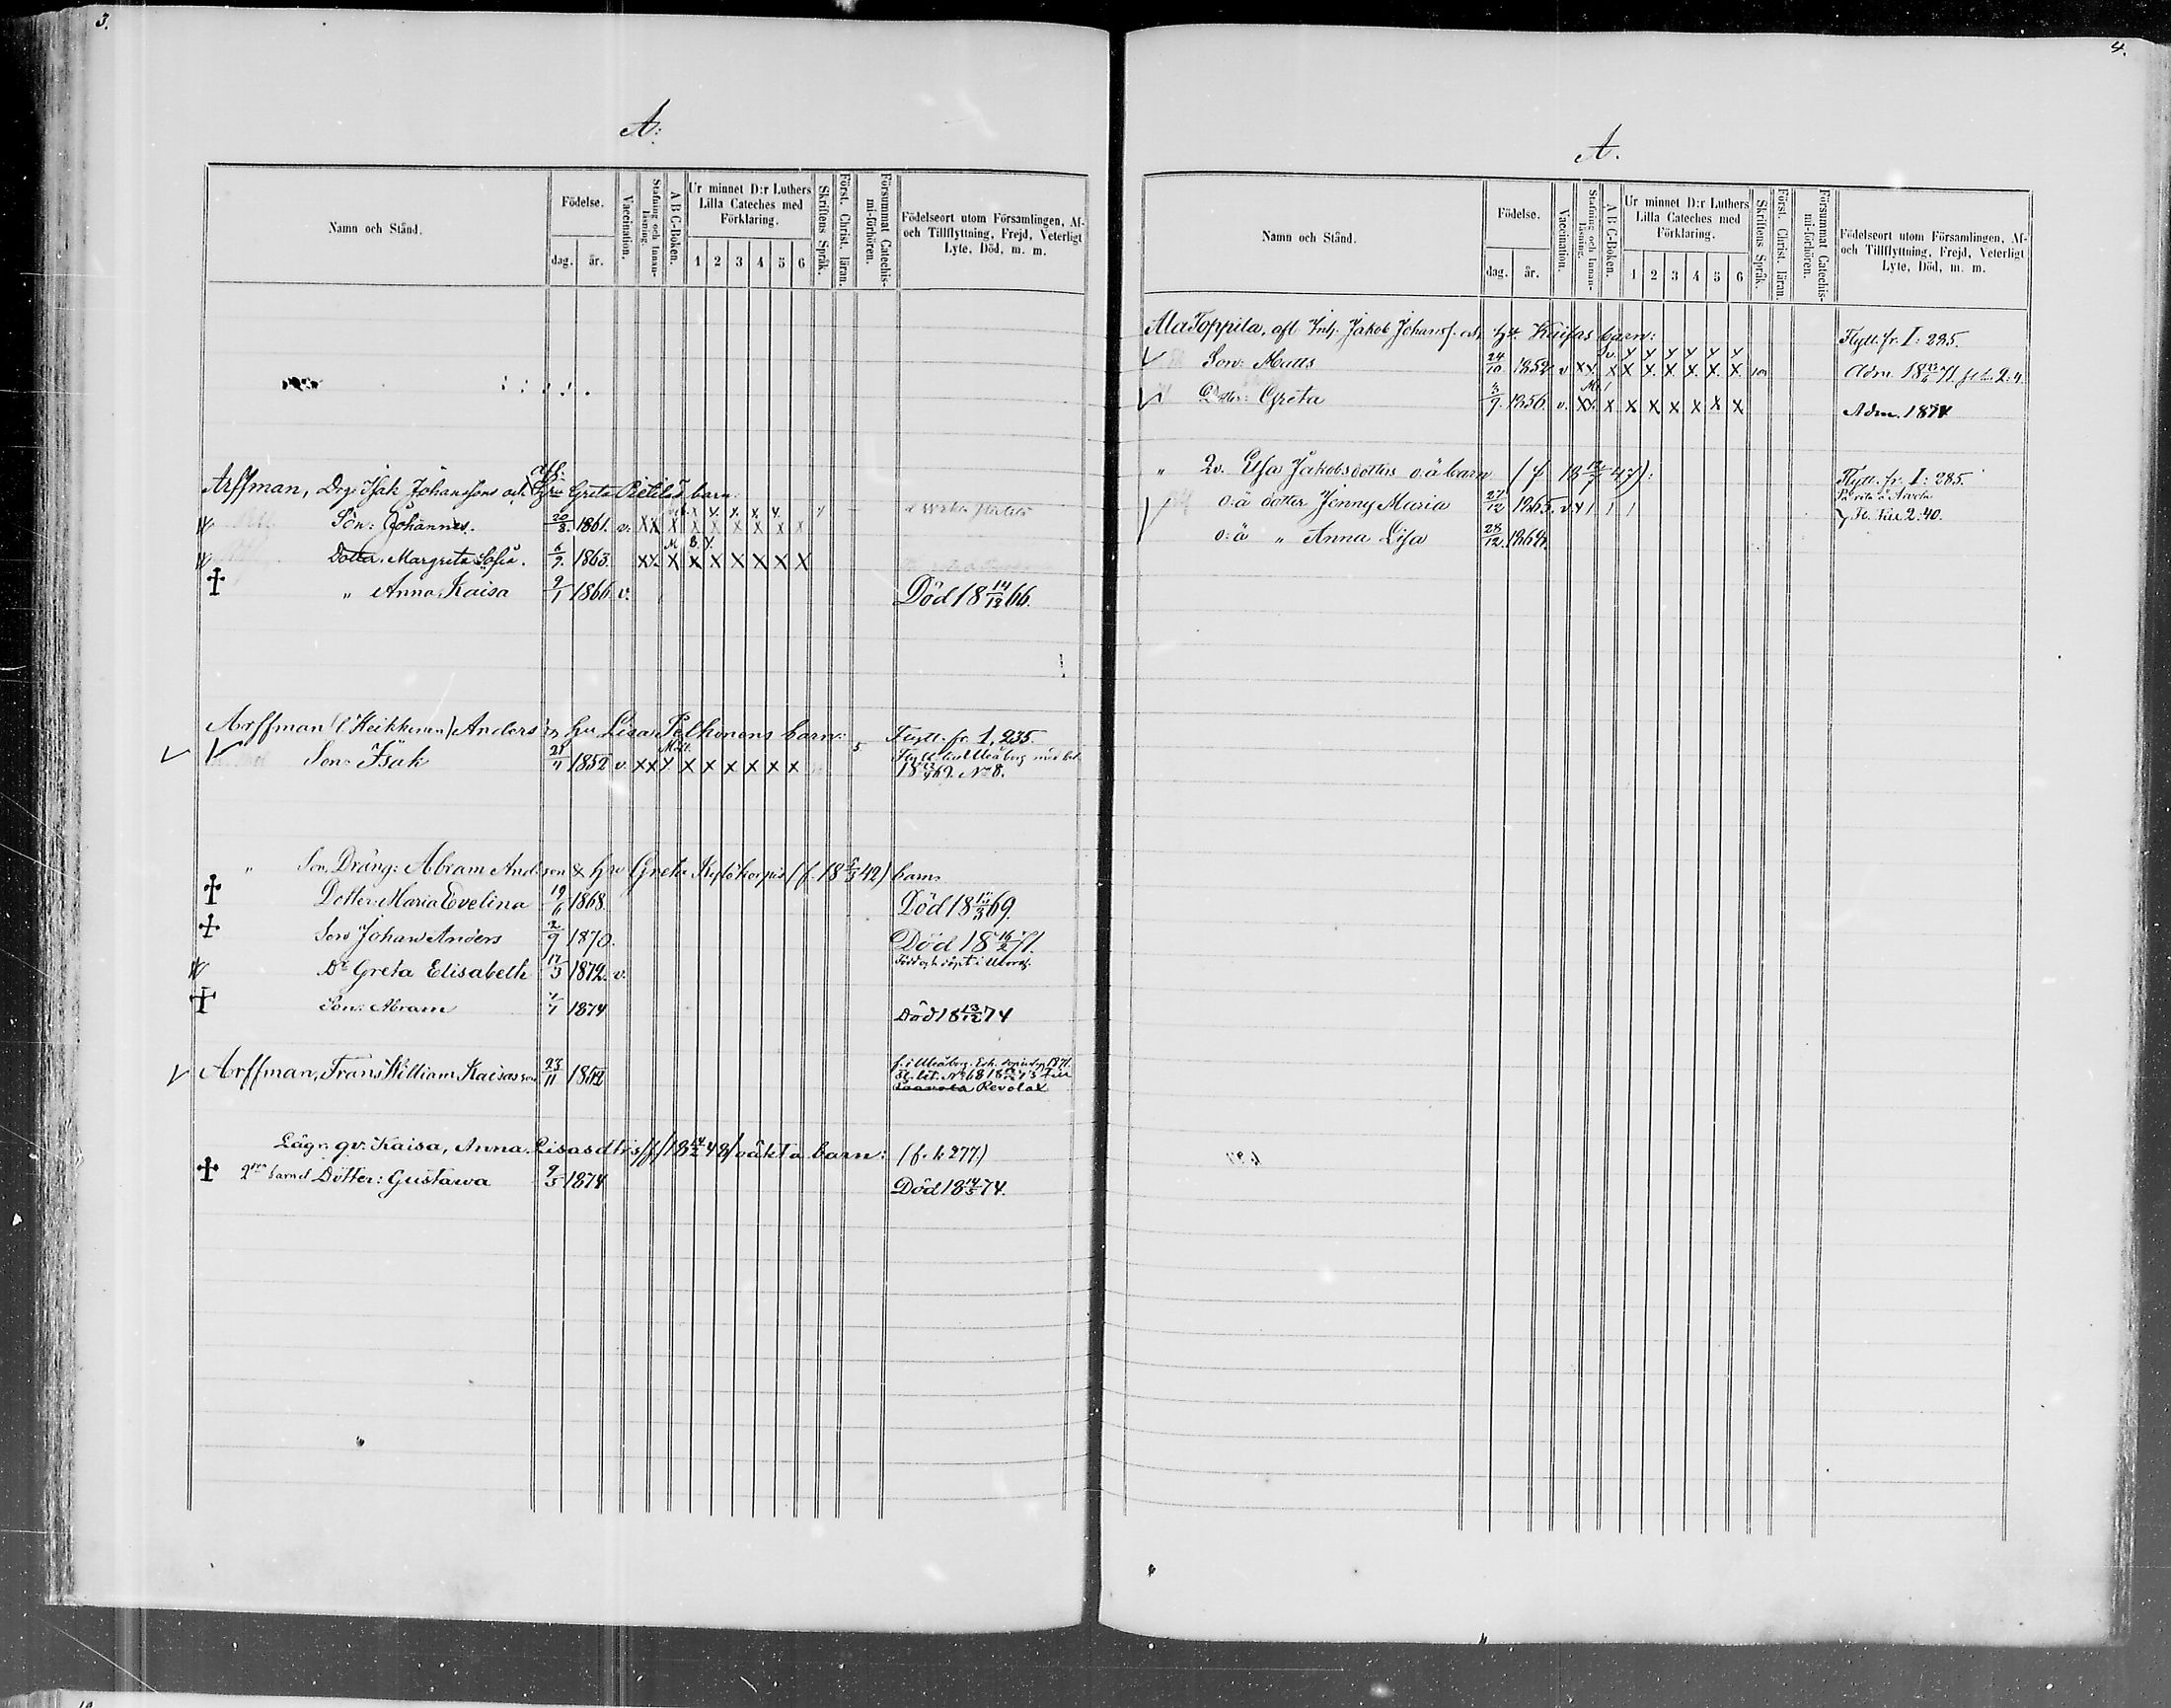 3.
A.
Namn och Stånd.
Födelse.
dag.
år.
Vaccination.
Stafning och Innanläsning.
A B C-Boken.
Ur minnet D:r Luthers Lilla Cateches med Förklaring.
1 2 3 4 5 6
Skriftens Språk.
Först. Christ. läran.
Försummat Catechismi-förhören.
Födelseort utom Församlingen, Af- och Tillflyttning, Frejd, Veterligt Lyte, Död, m. m.
Arffman, Drg. Isak Johanssons och Hu Greta Pietilës barn
Son: Johannes. 20/8. 1861. v. X X X X X X X X
Dotter. Margreta Sofia. 6/9. 1863. X X X X X X X X X
" Anna Kaisa 9/1 1866 v. Död 18 14/12 66.
Arffman (l Heikkinen) Anders o hu Lisa Pelkonens barn: Flytt. fr. 1, 235.
Son: Isak 28/11 1852 v. X X X X X X X X X 5 Flytt till Uleåborg med bet.
" Son, Dräng: Abram And.son & hu Greta (f. 18 5/3 42) barn
Dotter: Maria Evelina 19/6 1868. Död 18 11/3 69.
Son Johan Anders 2/9 1870. Död 18 16/2 71.
Dr Greta Elisabeth 17/3 1872. v.
Son: Abram 1/1 1874 Död 18 13/12 74
Arffman, Frans William Kaisasson 23/11 1862 f. i Uleåborg.
Revolax
Lägr. qv. Kaisa, Anna Lisasdtrs /f/18 14/2 48/ oäkta barn: (f. k 277)
2dra barnet Dotter: Gustawa 9/3 1874 Död 18 14/5 74.
4.
A.
Namn och Stånd.
Födelse.
dag.
år.
Vaccination.
Stafning och Innanläsning.
A B C-Boken.
Ur minnet D:r Luthers Lilla Cateches med Förklaring.
1 2 3 4 5 6
Skriftens Språk.
Först. Christ. läran.
Försummat Catechismi-förhören.
Födelseort utom Församlingen, Af- och Tillflyttning, Frejd, Veterligt Lyte, Död, m. m.
AlaToppila, afl Inh. Jakob Johanss. och hu Kaisas barn: Flytt. fr. I: 285.
Son: Matts 24/10. 1854 v X X X X X X X X X Adm.
Dotter: Greta 3/9. 1856. v. X X X X X X X X X Adm. 1874
" Qv. Elsa Jakobsdotters o.ä barn Flytt. fr. I: 285.
o:ä dotter Jenny Maria 27/12 1865. v
2:40.
o:ä " Anna Lisa 28/12. 1869.